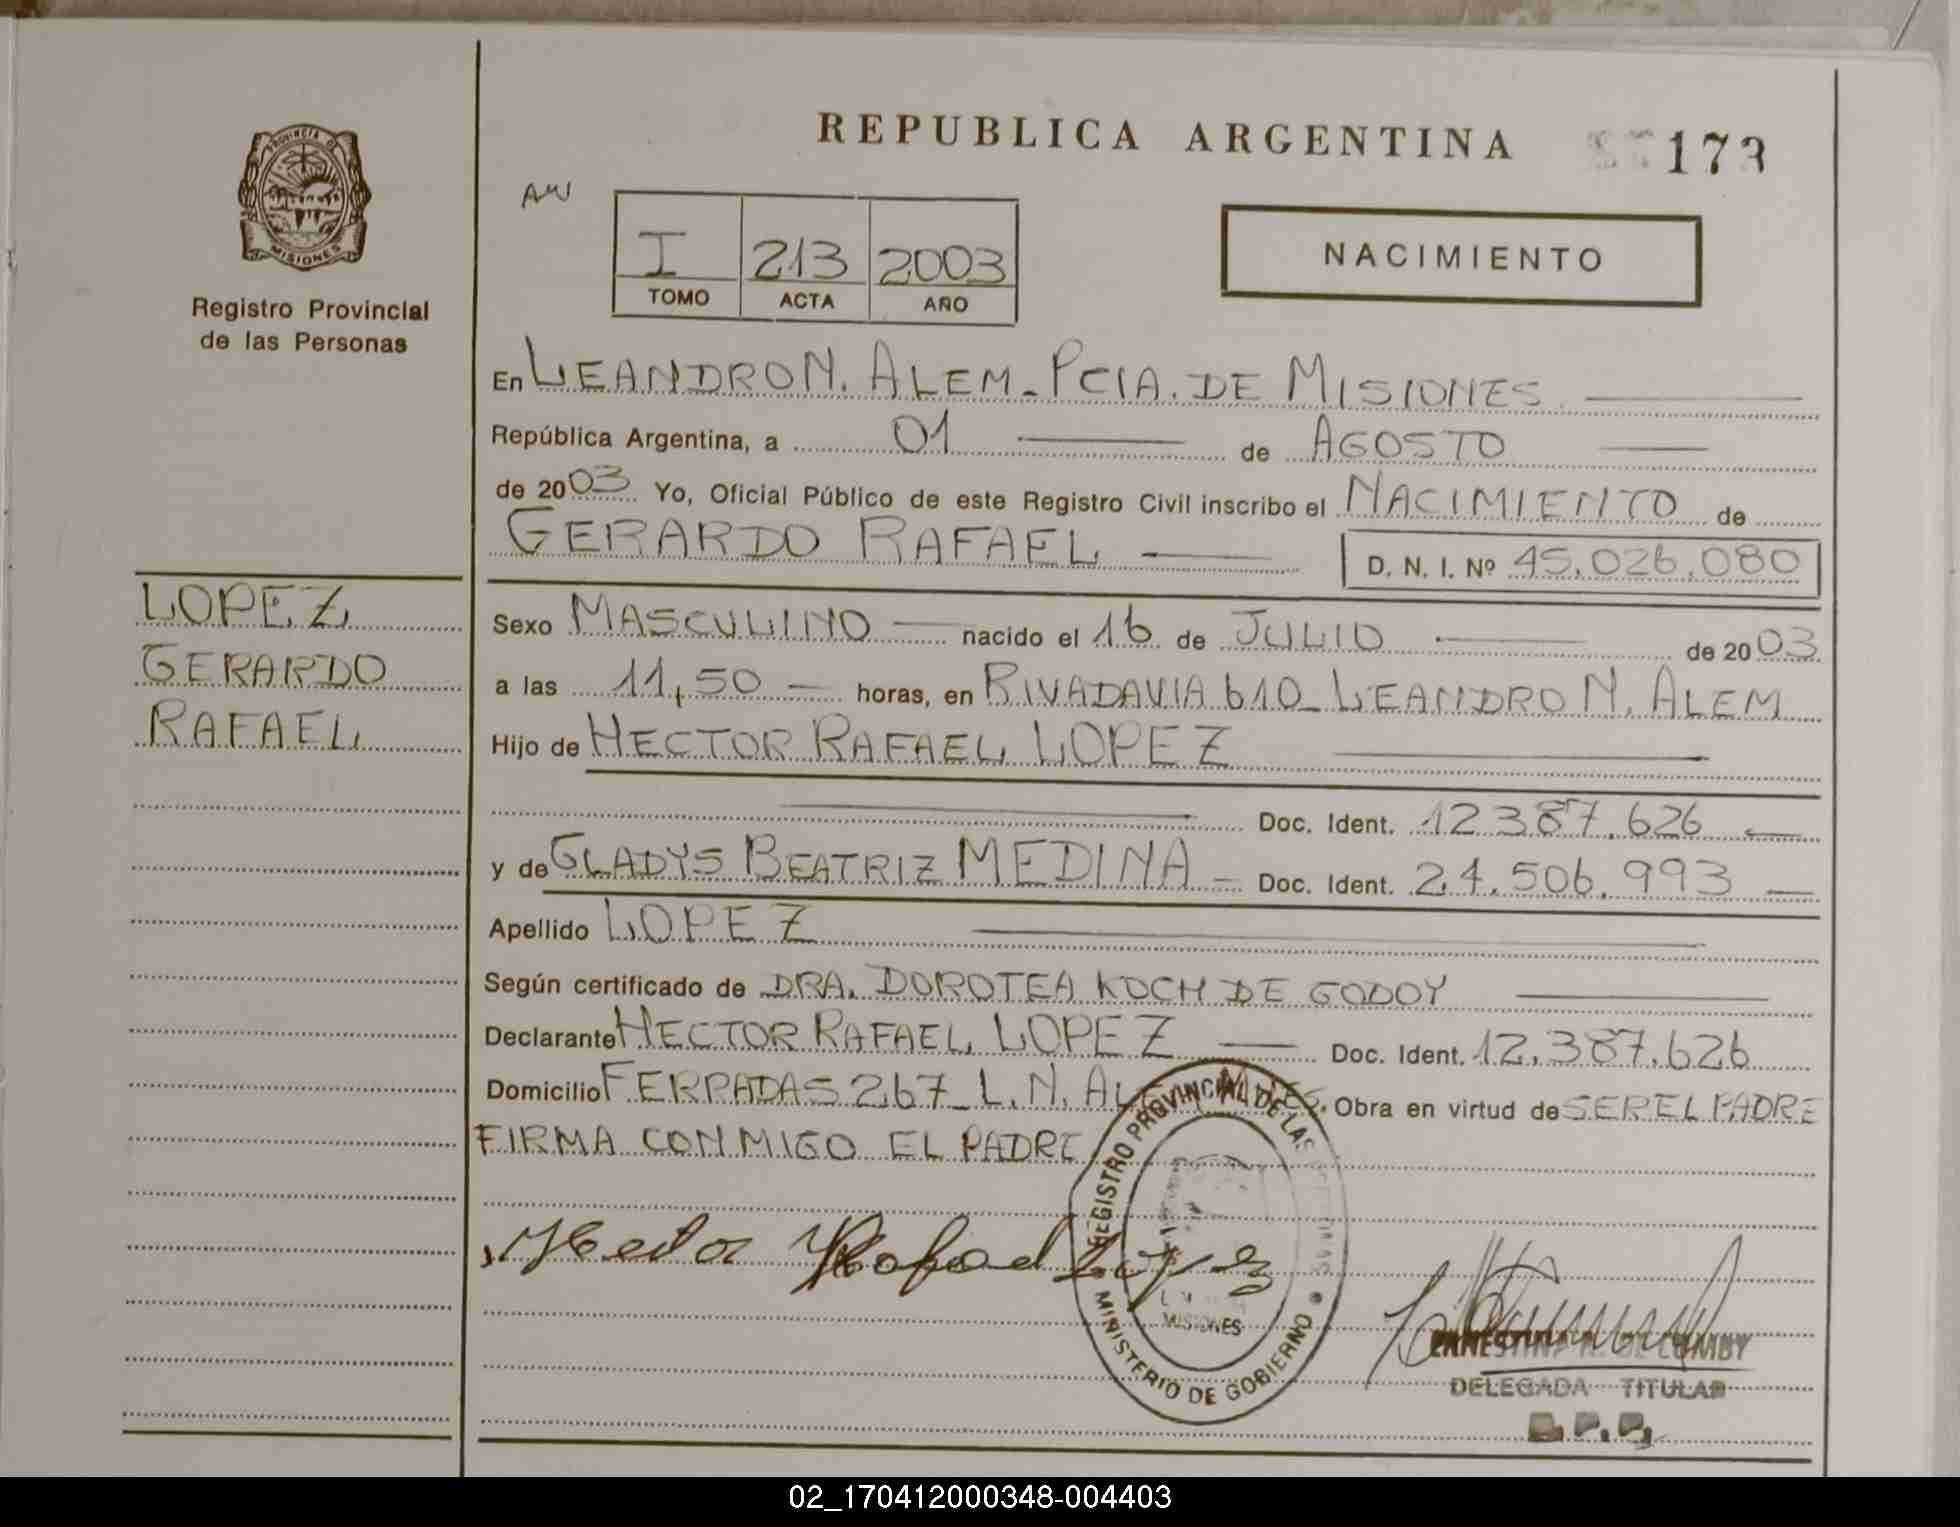 REPUBLICA ARGENTINA
173
PROVINCIA DE
MISIONES
Registro Provincial
de las Personas
I 213 2003
TOMO ACTA AÑO
NACIMIENTO
En LEANDRO N. ALEM - PCIA. DE MISIONES
República Argentina, a 01 de AGOSTO
de 2003 Yo, Oficial Público de este Registro Civil inscribo el NACIMIENTO de
GERARDO RAFAEL
D. N. I. Nº 45.026.080
LOPEZ
GERARDO
RAFAEL
Sexo MASCULINO nacido el 16 de JULIO de 2003
a las 11,50 horas, en RIVADAVIA 610 - LEANDRO N. ALEM
Hijo de HECTOR RAFAEL LOPEZ
Doc. Ident. 12.387.626
y de GLADYS BEATRIZ MEDINA - Doc. Ident. 24.506.993
Apellido LOPEZ
Según certificado de DRA. DOROTEA KOCH DE GODOY
Declarante HECTOR RAFAEL LOPEZ Doc. Ident. 12.387.626
Domicilio FERRADAS 267 - L. N. ALEM Obra en virtud de SER EL PADRE
FIRMA CONMIGO EL PADRE
Hector Rafael Lopez
REGISTRO PROVINCIAL DE LAS PERSONAS
MISIONES
MINISTERIO DE GOBIERNO
DELEGADA TITULAR
02_170412000348-004403